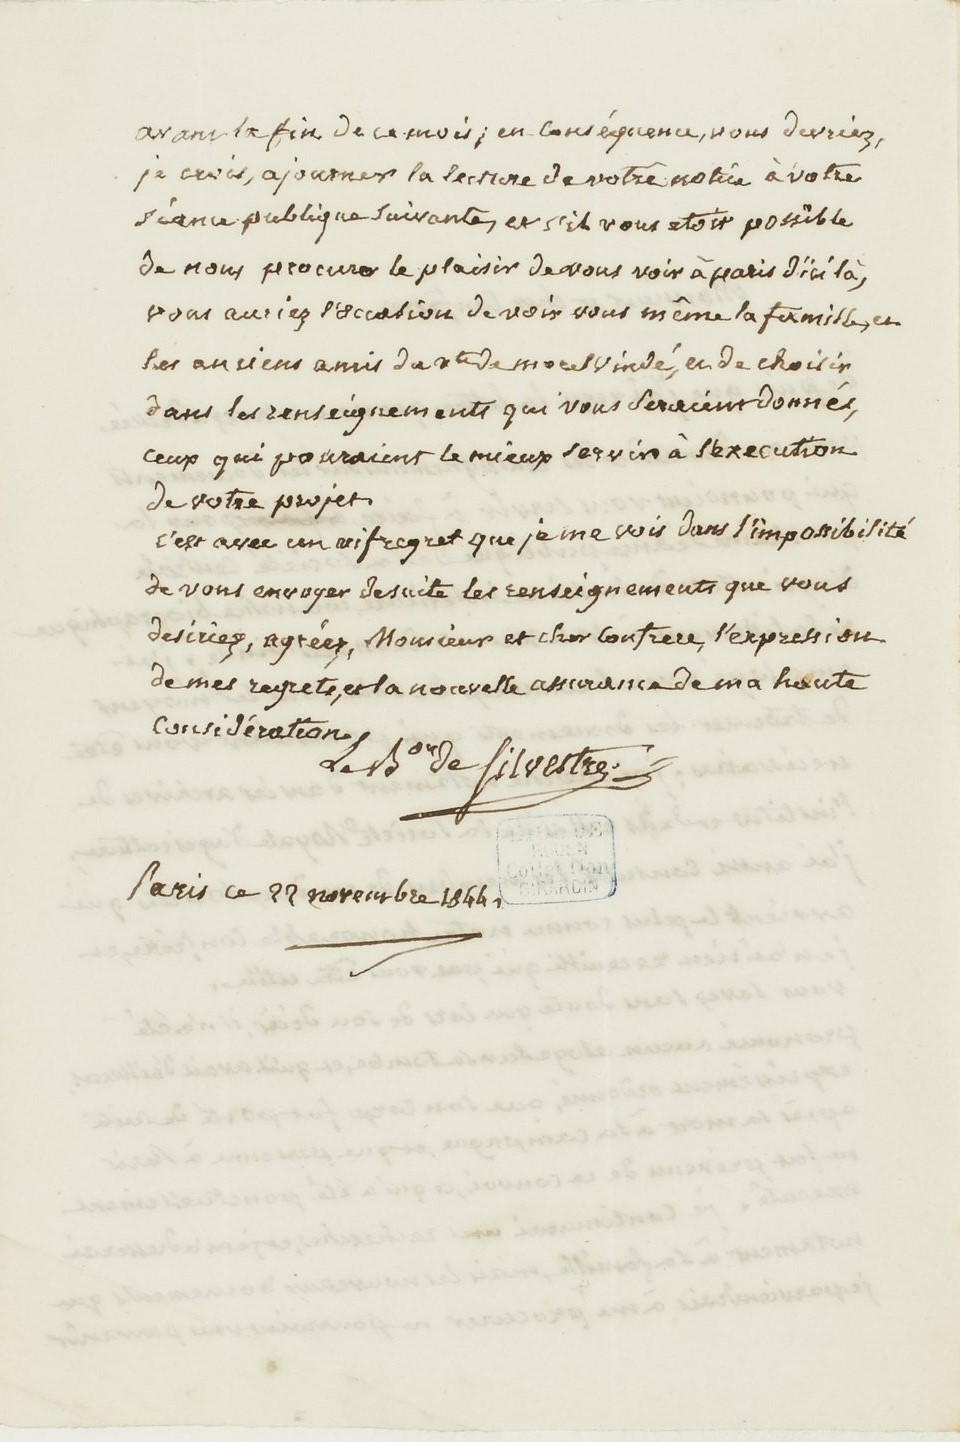 avant la fin de ce mois; en conséquence, vous devriez,
je crois, ajourner la lecture de votre notice à votre
séance publique suivante, et s'il vous etoit possible
de nous procurer le plaisir de vous voir à paris d'ici là,
vous auriez l'occasion de voir vous même la famille, et
les anciens amis du vte de morel Vindé, et de choisir
dans les renseignements qui vous seraient donnés,
ceux qui pouraient le mieux servir à l'execution
de votre projet.
c'est avec un vif regret que je me vois dans l'impossibilité
de vous envoyer de suite les renseignements que vous
desiriez, agréez, Monsieur et cher confrere, l'expression
de mes regrets, et la nouvelle assurance de ma haute
considération.
Le Bon de Silvestre.
ROUEN
Collection
GIRARDIN
Paris ce 22 novembre 1844.